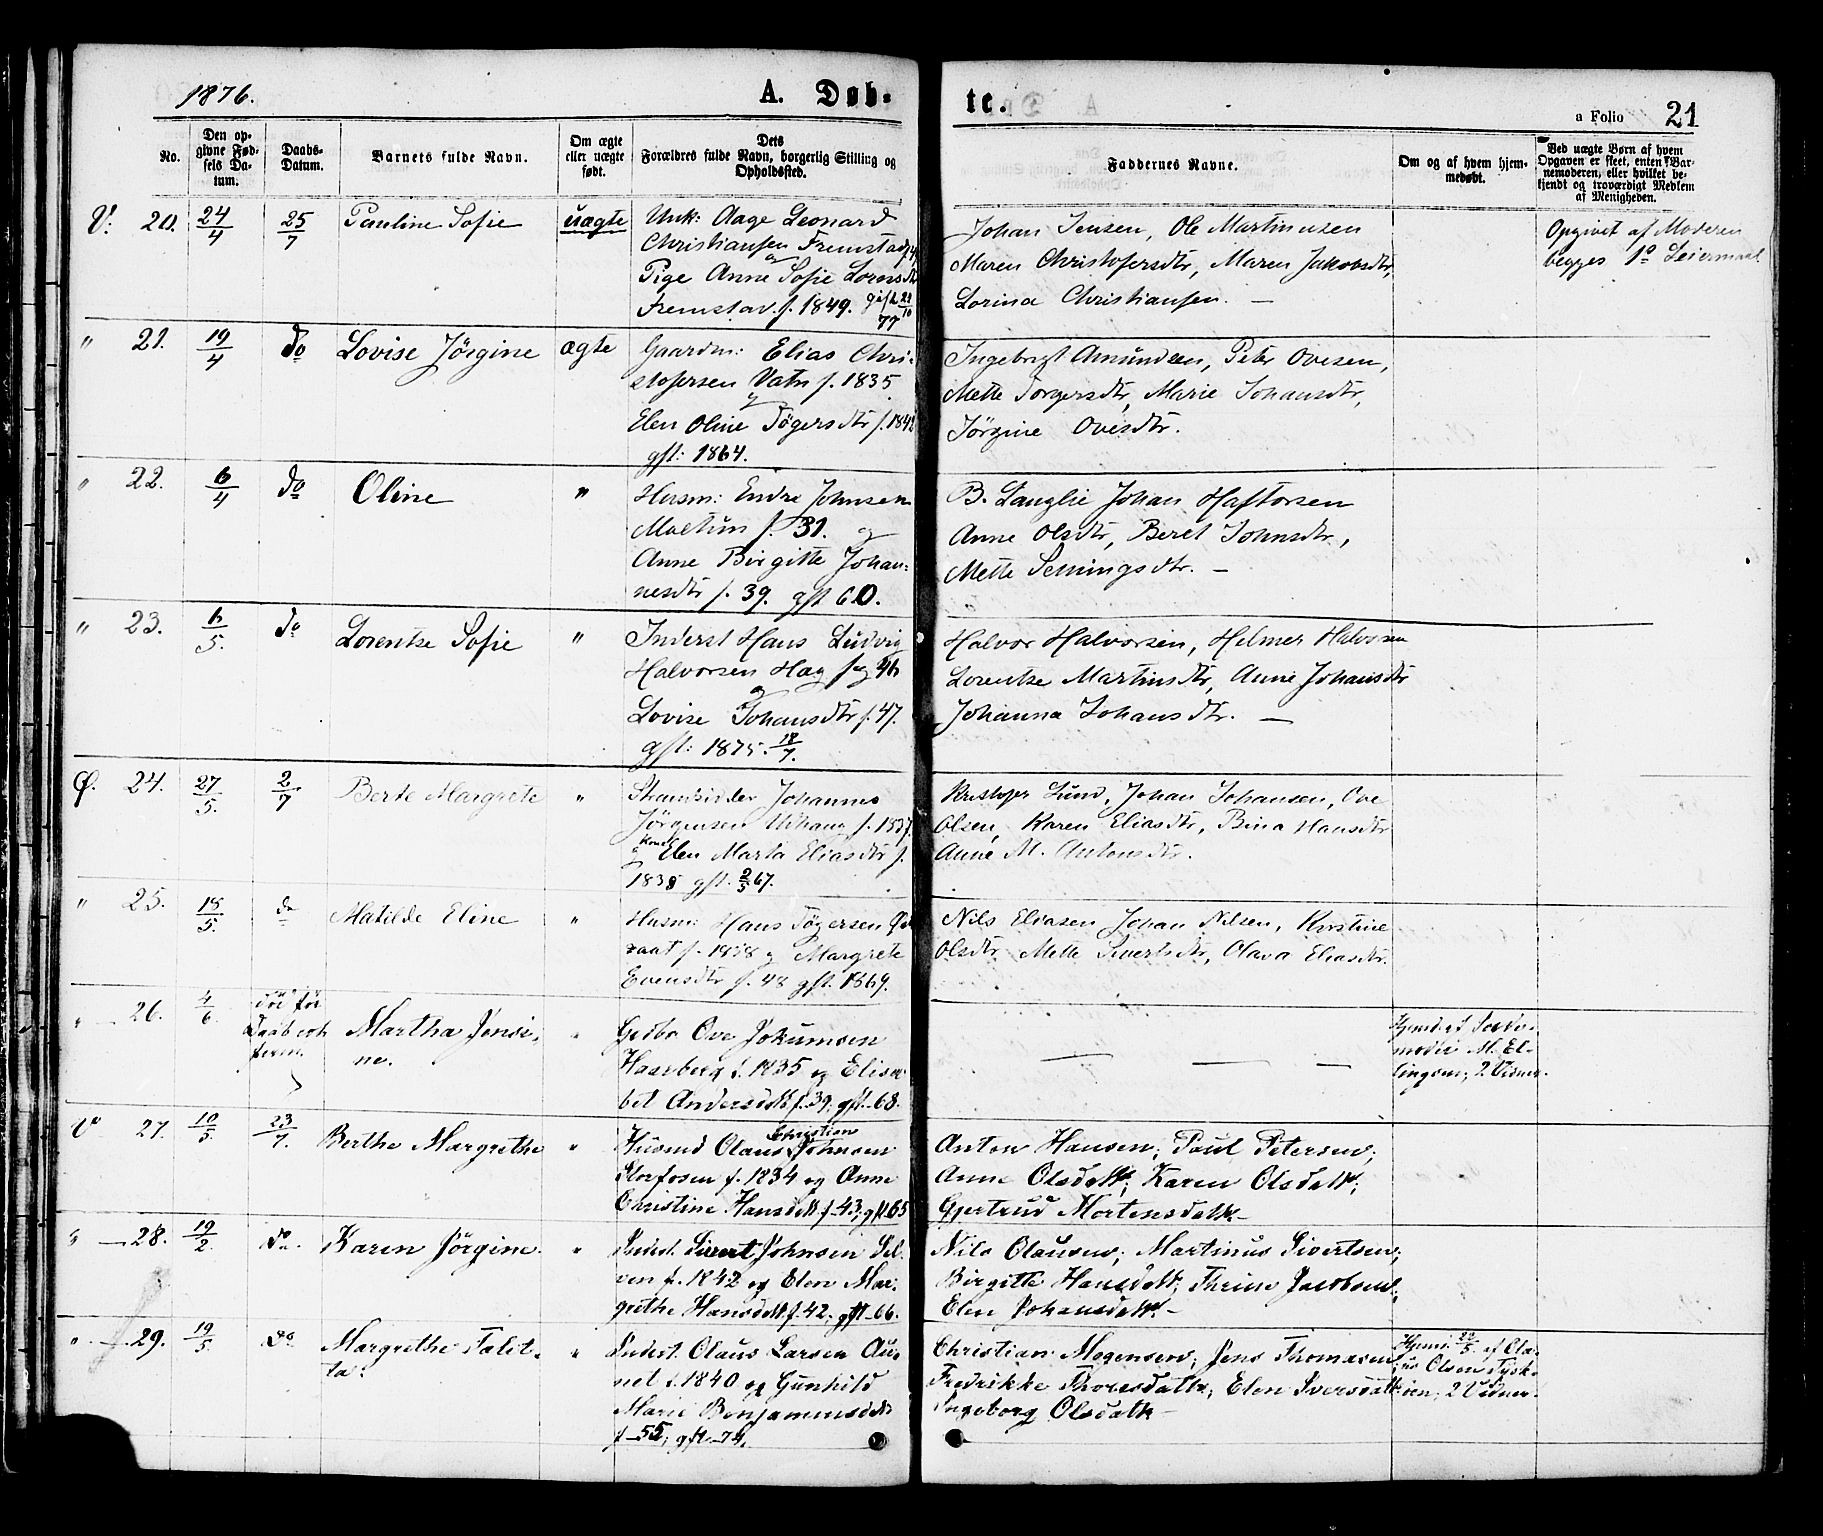 1876.
A. Døb-
te.
a Folio 21
No.
Den op-
givne Fød-
sels Da-
tum.
Daabs-
Datum.
Barnets fulde Navn.
Om ægte
eller uægte
født.
Dets
Forældres fulde Navn, borgerlig Stilling og
Opholdssted.
Faddernes Navne.
Om og af hvem hjem-
medøbt.
Ved uægte Børn af hvem
Opgaven er skeet, enten Bar-
nemoderen, eller hvilket be-
kjendt og troværdigt Medlem
af Menigheden.
V. 20. 24/4 25/7 Pauline Sofie uægte
Unk: Aage Leonard
Christiansen Fremstad
og
Pige Anne Sofie Lorensdtr
Fremstad f. 1849. gift 22/10
77
Johan Jensen, Ole Martinusen
Maren Christofersdtr, Maren Jakobsdtr,
Lorina Christiansen. —
Opgivet af Moderen
begges 1o Leiermaal
" 21. 19/4 do Lovise Jørgine ægte
Gaardm: Elias Chri-
stofersen Vatn f. 1835
og
Elen Oline Tøgersdtr f. 1842
gft: 1864.
Ingebrigt Amundsen, Peter Ovesen,
Mette Torgersdtr, Marie Johansdtr,
Jørgine Ovesdtr.
" 22. 6/4 do Oline "
Husm: Endre Johnsen
Moltun f. 31. og
Anne Birgitte Johan-
nesdtr f. 39. gft 60.
B. Langlie Johan Haftorsen
Anne Olsdtr, Beret Johnsdtr,
Mette Henningsdtr. —
" 23. 6/5. do Lorentse Sofie "
Inderst Hans Ludvig
Halvorsen Hag f. 46
og
Lovise Johansdtr f. 47.
gft: 1875. 18/7.
Halvor Halvorsen, Helmer Halvorsen
Lorentse Martinsdtr, Anne Johansdtr
Johanna Johansdtr. —
Ø. 24. 27/5. 2/7 Berte Margrete "
Strandsidder Johannes
Jørgensen Uthaug f. 1837.
og Kone Elen Marta Eliasdtr f.
1838 gft. 2/5 67.
Kristofer Lund, Johan Johansen, Ove
Olsen, Karen Eliasdtr, Bina Hansdtr
Anne M. Antonsdtr.
" 25. 18/5. do Matilde Eline "
Husm: Hans Tøgersen
f. 1838 og Margrete
Evensdtr f. 48 gft. 1869.
Nils Eliasen Johan Nilsen, Kirstine
Olsdtr Mette Sivertsdtr, Olava Eliasdtr.
" 26. 4/6 død før
Daab
Martha Jensi-
ne. "
Grdbr Ove Jokumsen
Haarberg f. 1835 og Elisa-
bet Andersdtt f. 39; gft. 68.
— — —
Hjemd. af Jorde-
moder M. El-
lingsen; 2 Vidner.
V 27. 10/5. 23/7. Berthe Margrethe "
Husmd Olaus Christian Johnsen
Storfosen f. 1834 og Anne
Christine Hansdtt f. 43; gft. 65
Anton Hansen; Paul Petersen;
Anne Olsdatt; Karen Olsdatt;
Gjertrud Mortensdatt. —
" 28. 19/2. do. Karen Jørgine. "
Inderst. Sivert Johnsen Sel-
ven f. 1842 og Elen Mar-
grethe Hansdatt f. 42. gft. 66.
Nils Olausen; Martinus Sivertsen;
Birgitte Hansdatt; Thrine Jacobsen;
Elen Johansdatt. —
" 29. 19/5 do. Margrethe Talet-
ta. "
Inderst. Olaus Larsen Au-
net f. 1840 og Gunhild
Marie Benjaminsdtt
f. 55; gft. 74.
Christian Mogensen; Jens Thomasen
Fredrikke Thoresdatt; Elen Iversdatt
Ingeborg Olsdatt —
Hjemd. 20/5. af Ola-
us Olsen
2 Vidner.